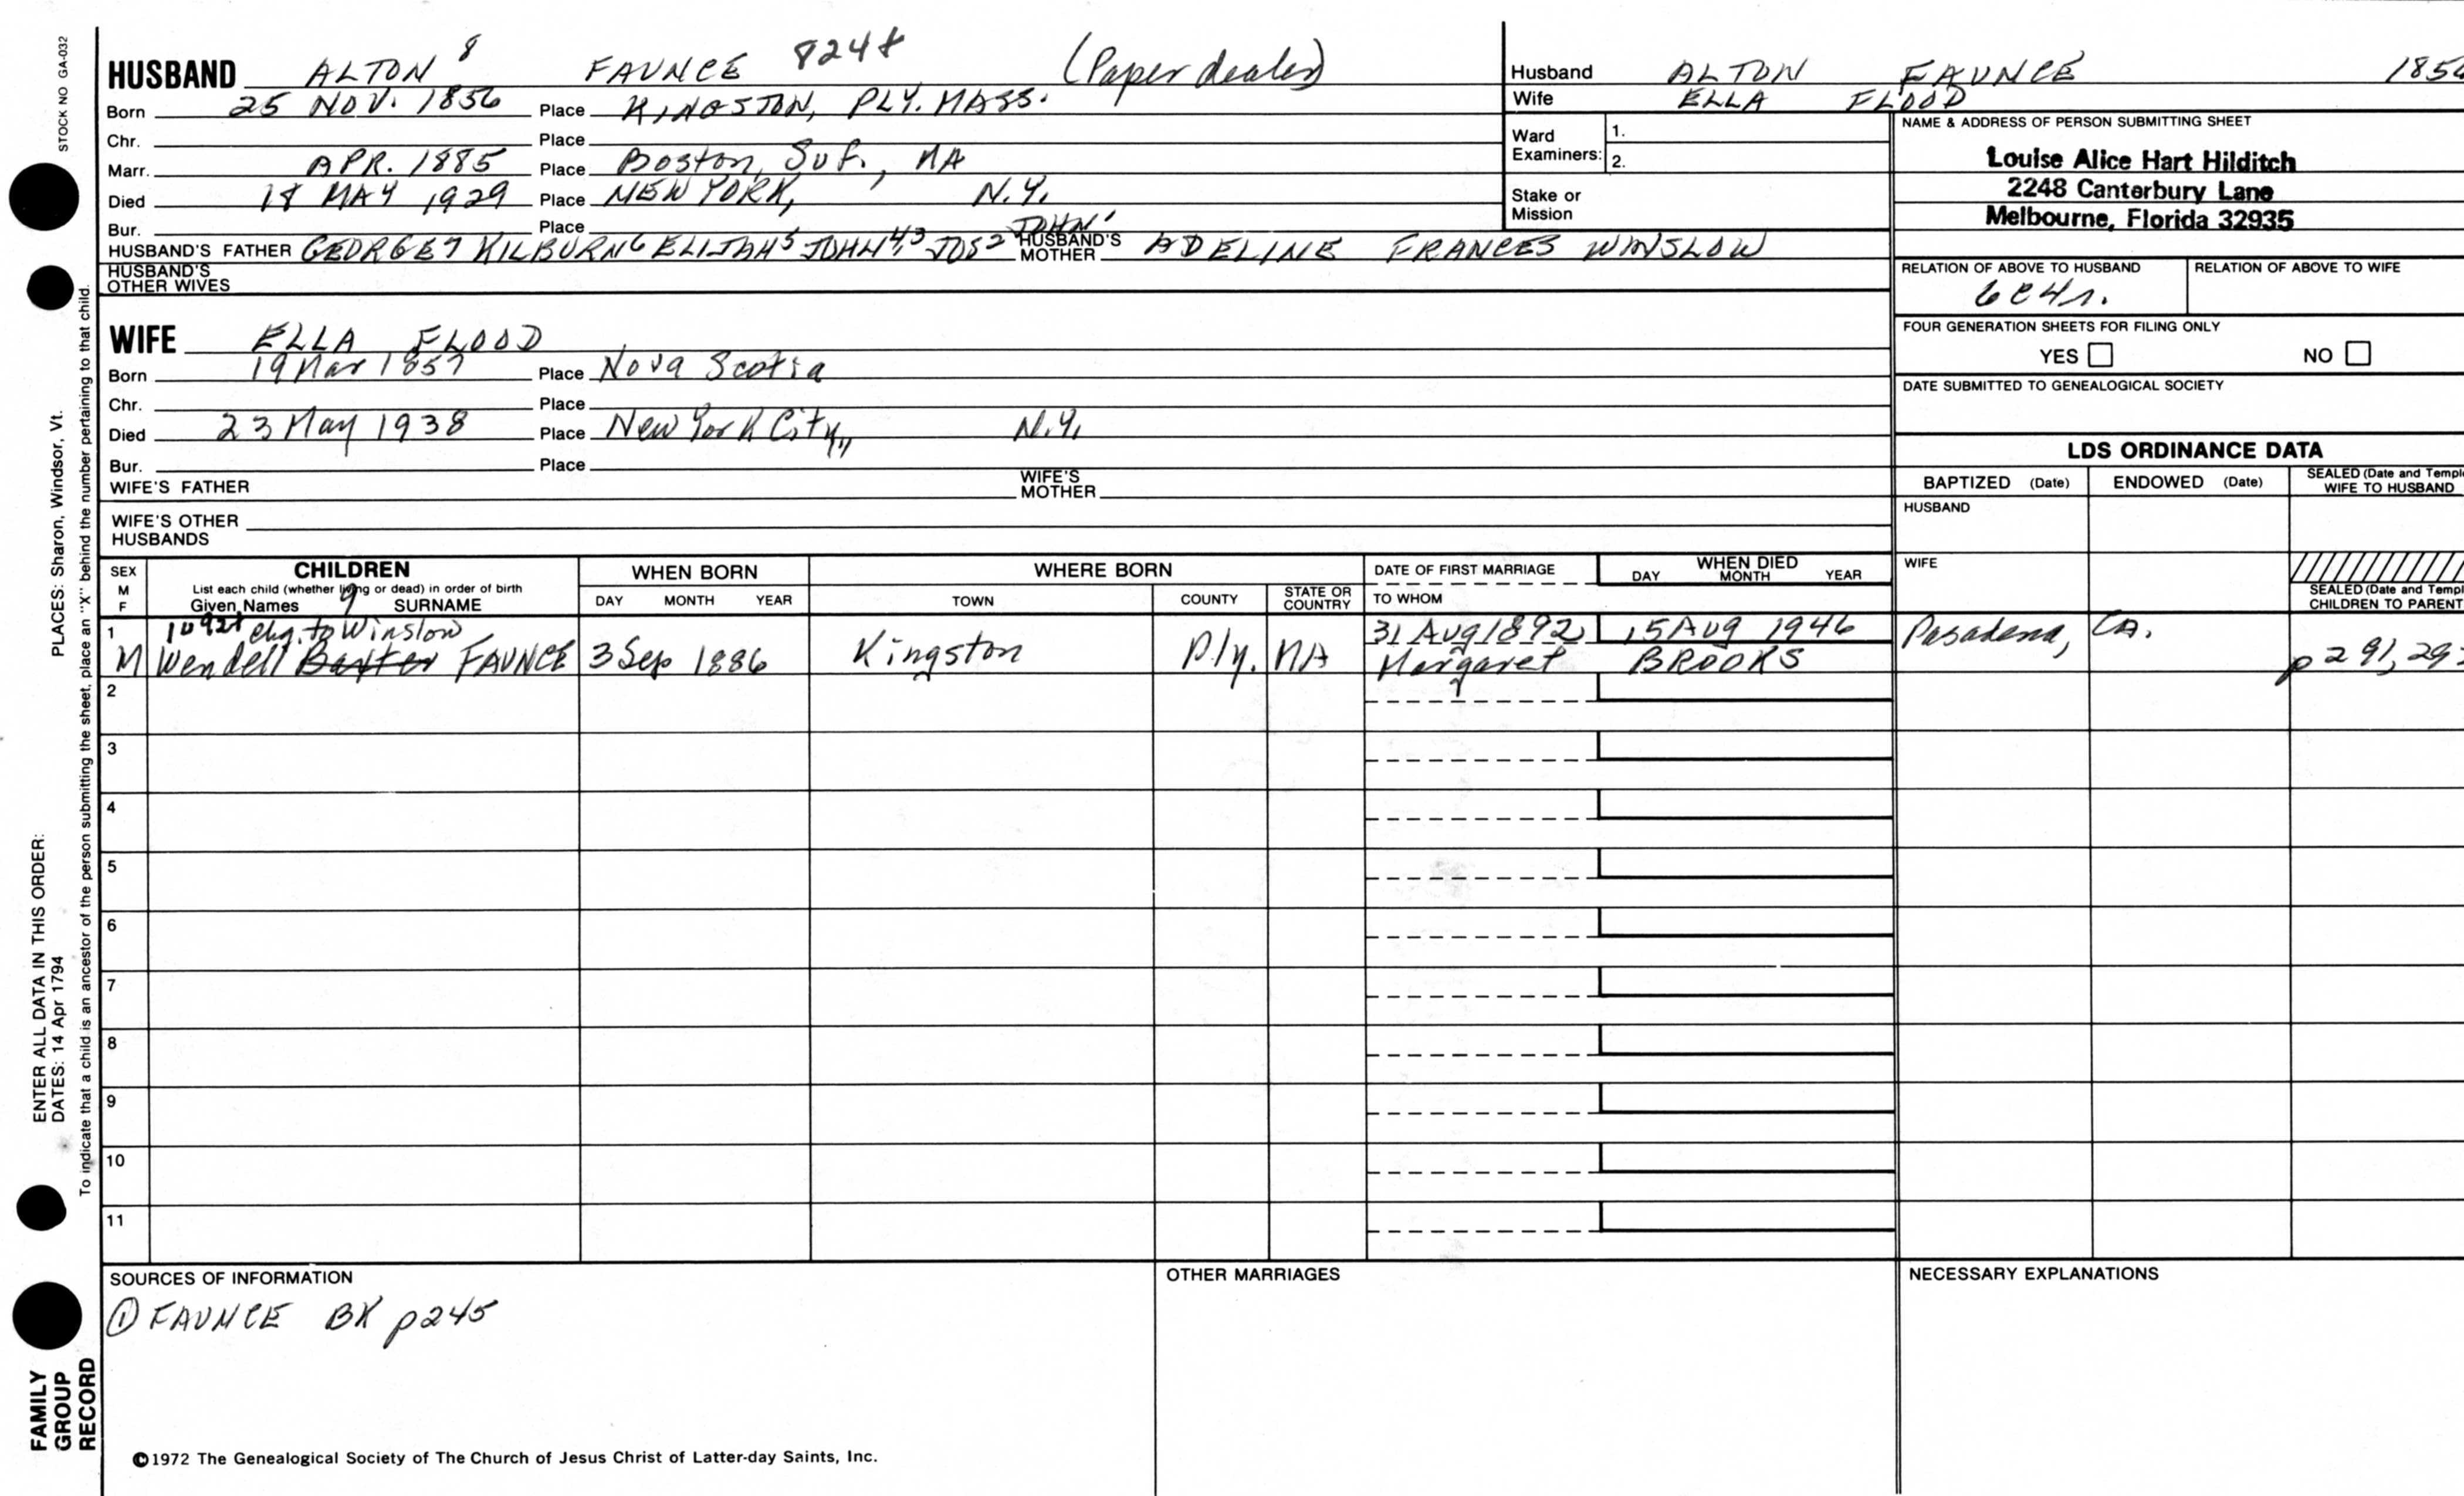 STOCK NO GA-032
HUSBAND ALTON 8 FAUNCE 824+ (Paper dealer)
Born 25 NOV. 1856 Place KINGSTON, PLY. MASS.
Chr. Place
Marr. APR. 1885 Place Boston, Suf., MA
Died 18 MAY 1929 Place NEW YORK, N.Y.
Bur. Place
HUSBAND'S FATHER GEORGE7 KILBURN6 ELIJAH5 JOHN4,3 JOS2 JOHN' HUSBAND'S MOTHER ADELINE FRANCES WINSLOW
HUSBAND'S OTHER WIVES
WIFE ELLA FLOOD
Born 19 Mar 1857 Place Nova Scotia
Chr. Place
Died 23 May 1938 Place New York City,, N.Y.
Bur. Place
WIFE'S FATHER WIFE'S MOTHER
WIFE'S OTHER HUSBANDS
Husband ALTON FAUNCE
Wife ELLA FLOOD
Ward Examiners: 1.
2.
Stake or Mission
NAME & ADDRESS OF PERSON SUBMITTING SHEET
Louise Alice Hart Hilditch
2248 Canterbury Lane
Melbourne, Florida 32935
RELATION OF ABOVE TO HUSBAND RELATION OF ABOVE TO WIFE
6C4r.
FOUR GENERATION SHEETS FOR FILING ONLY
YES NO
DATE SUBMITTED TO GENEALOGICAL SOCIETY
LDS ORDINANCE DATA
BAPTIZED (Date) ENDOWED (Date) SEALED (Date and Templ
WIFE TO HUSBAND
HUSBAND
WIFE
SEALED (Date and Templ
CHILDREN TO PARENT
SEX M F
CHILDREN
List each child (whether living or dead) in order of birth
Given Names 9 SURNAME
WHEN BORN
DAY MONTH YEAR
WHERE BORN
TOWN COUNTY STATE OR COUNTRY
DATE OF FIRST MARRIAGE
TO WHOM
WHEN DIED
DAY MONTH YEAR
1 1092+ chg. to Winslow 31 Aug 1892 15 Aug 1946 Pasadena, CA.
M Wendell Baxter FAUNCE 3 Sep 1886 Kingston Ply. MA Margaret BROOKS p 291, 29
2
3
4
5
6
7
8
9
10
11
SOURCES OF INFORMATION
① FAUNCE BK p245
OTHER MARRIAGES
NECESSARY EXPLANATIONS
©1972 The Genealogical Society of The Church of Jesus Christ of Latter-day Saints, Inc.
ENTER ALL DATA IN THIS ORDER:
DATES: 14 Apr 1794
PLACES: Sharon, Windsor, Vt.
To indicate that a child is an ancestor of the person submitting the sheet, place an "X" behind the number pertaining to that child.
FAMILY
GROUP
RECORD